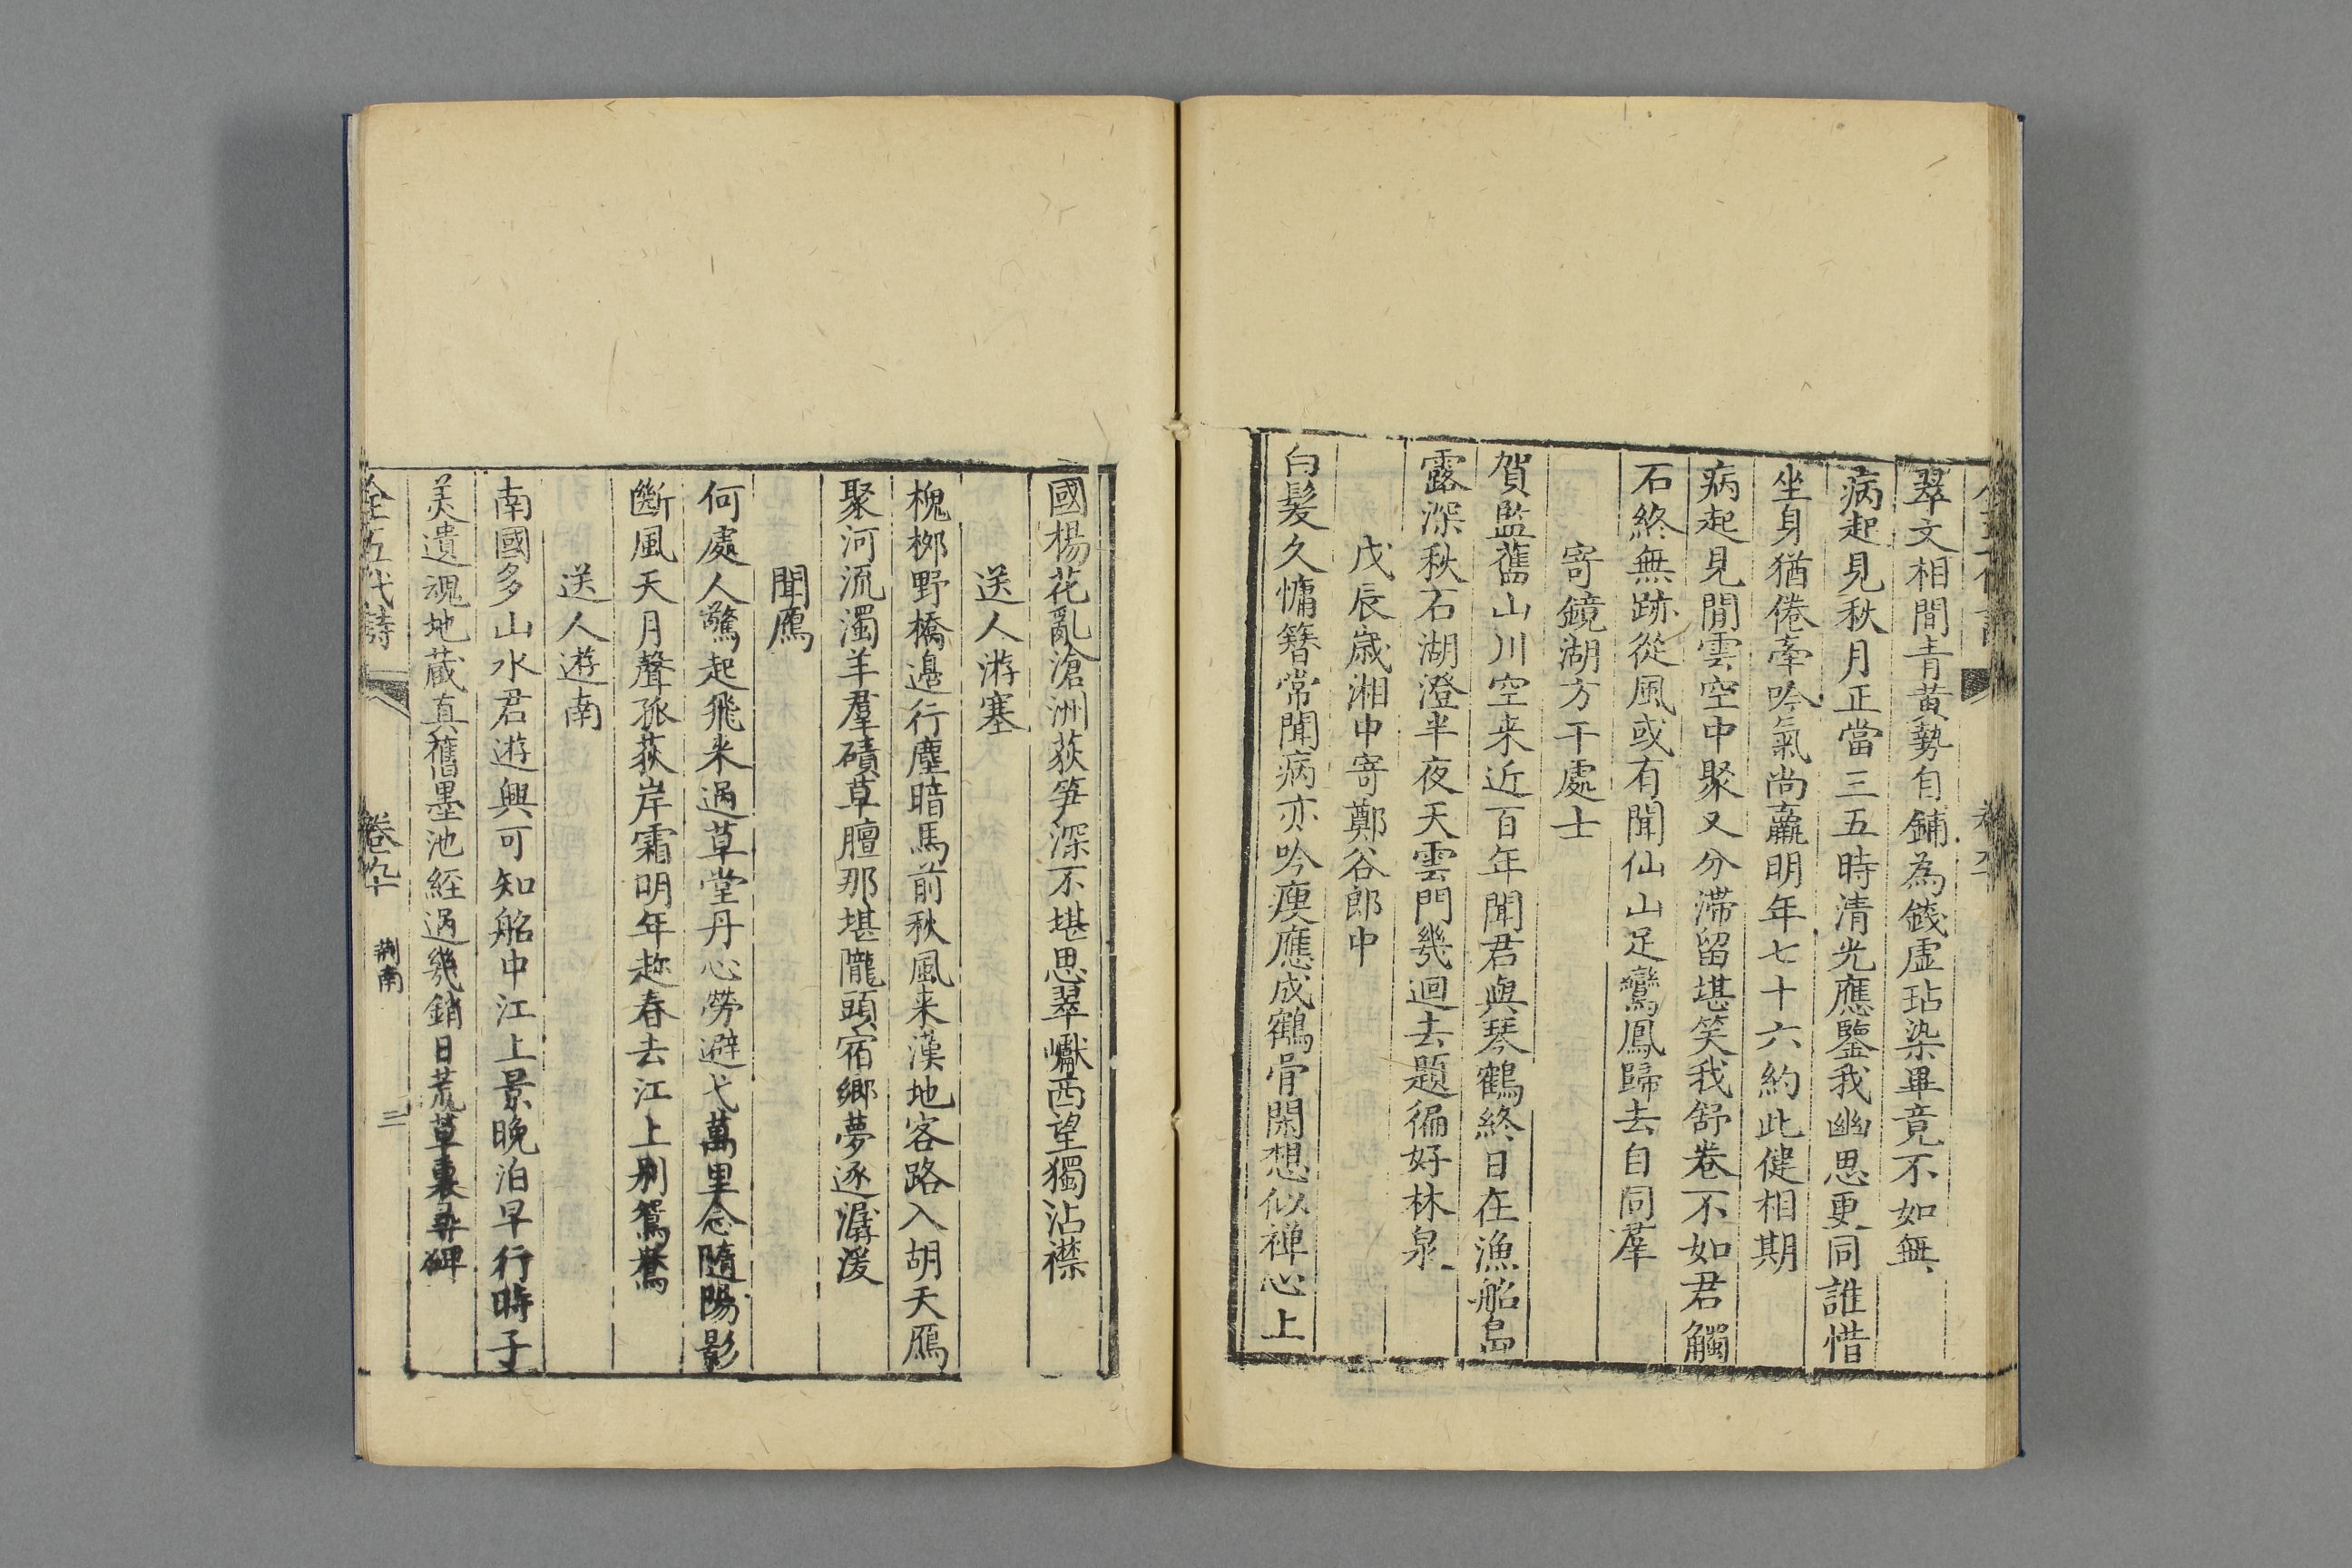 翠文相間青黄勢自鋪為錢虛玷染畢竟不如無
病起見秋月正當三五時清光應鑒我幽思更同誰惜
坐身猶倦牽吟氣尚羸明年七十六約此健相期
病起見閒雲空中聚又分滯留堪笑我舒卷不如君觸
石終無跡從風或有聞仙山足鸞鳳歸去自同羣
寄鏡湖方干處士
賀監舊山川空来近百年聞君與琴鶴終日在漁船島
露深秋石湖澄半夜天雲門幾迴去題徧好林泉
戊辰歲湘中寄鄭谷郎中
白髮久慵簪常聞病亦吟瘦應成鶴骨閑想似禅心上
國楊花亂滄洲荻笋深不堪思翠巘西望獨沾襟
送人游塞
槐栁野橋邉行塵暗馬前秋風来漢地客路入胡天鴈
聚河流濁羊羣磧草膻那堪隴頭宿鄉夢逐潺湲
聞鴈
何處人驚起飛来過草堂丹心勞避弋萬里念隨陽影
斷風天月聲孤荻岸霜明年趂春去江上别鴛鴦
送人遊南
南國多山水君遊興可知船中江上景晚泊早行時子
美遺魂地蔵真舊墨池經過幾銷日荒草裏尋碑
全五代詩 卷九十 荆南 三